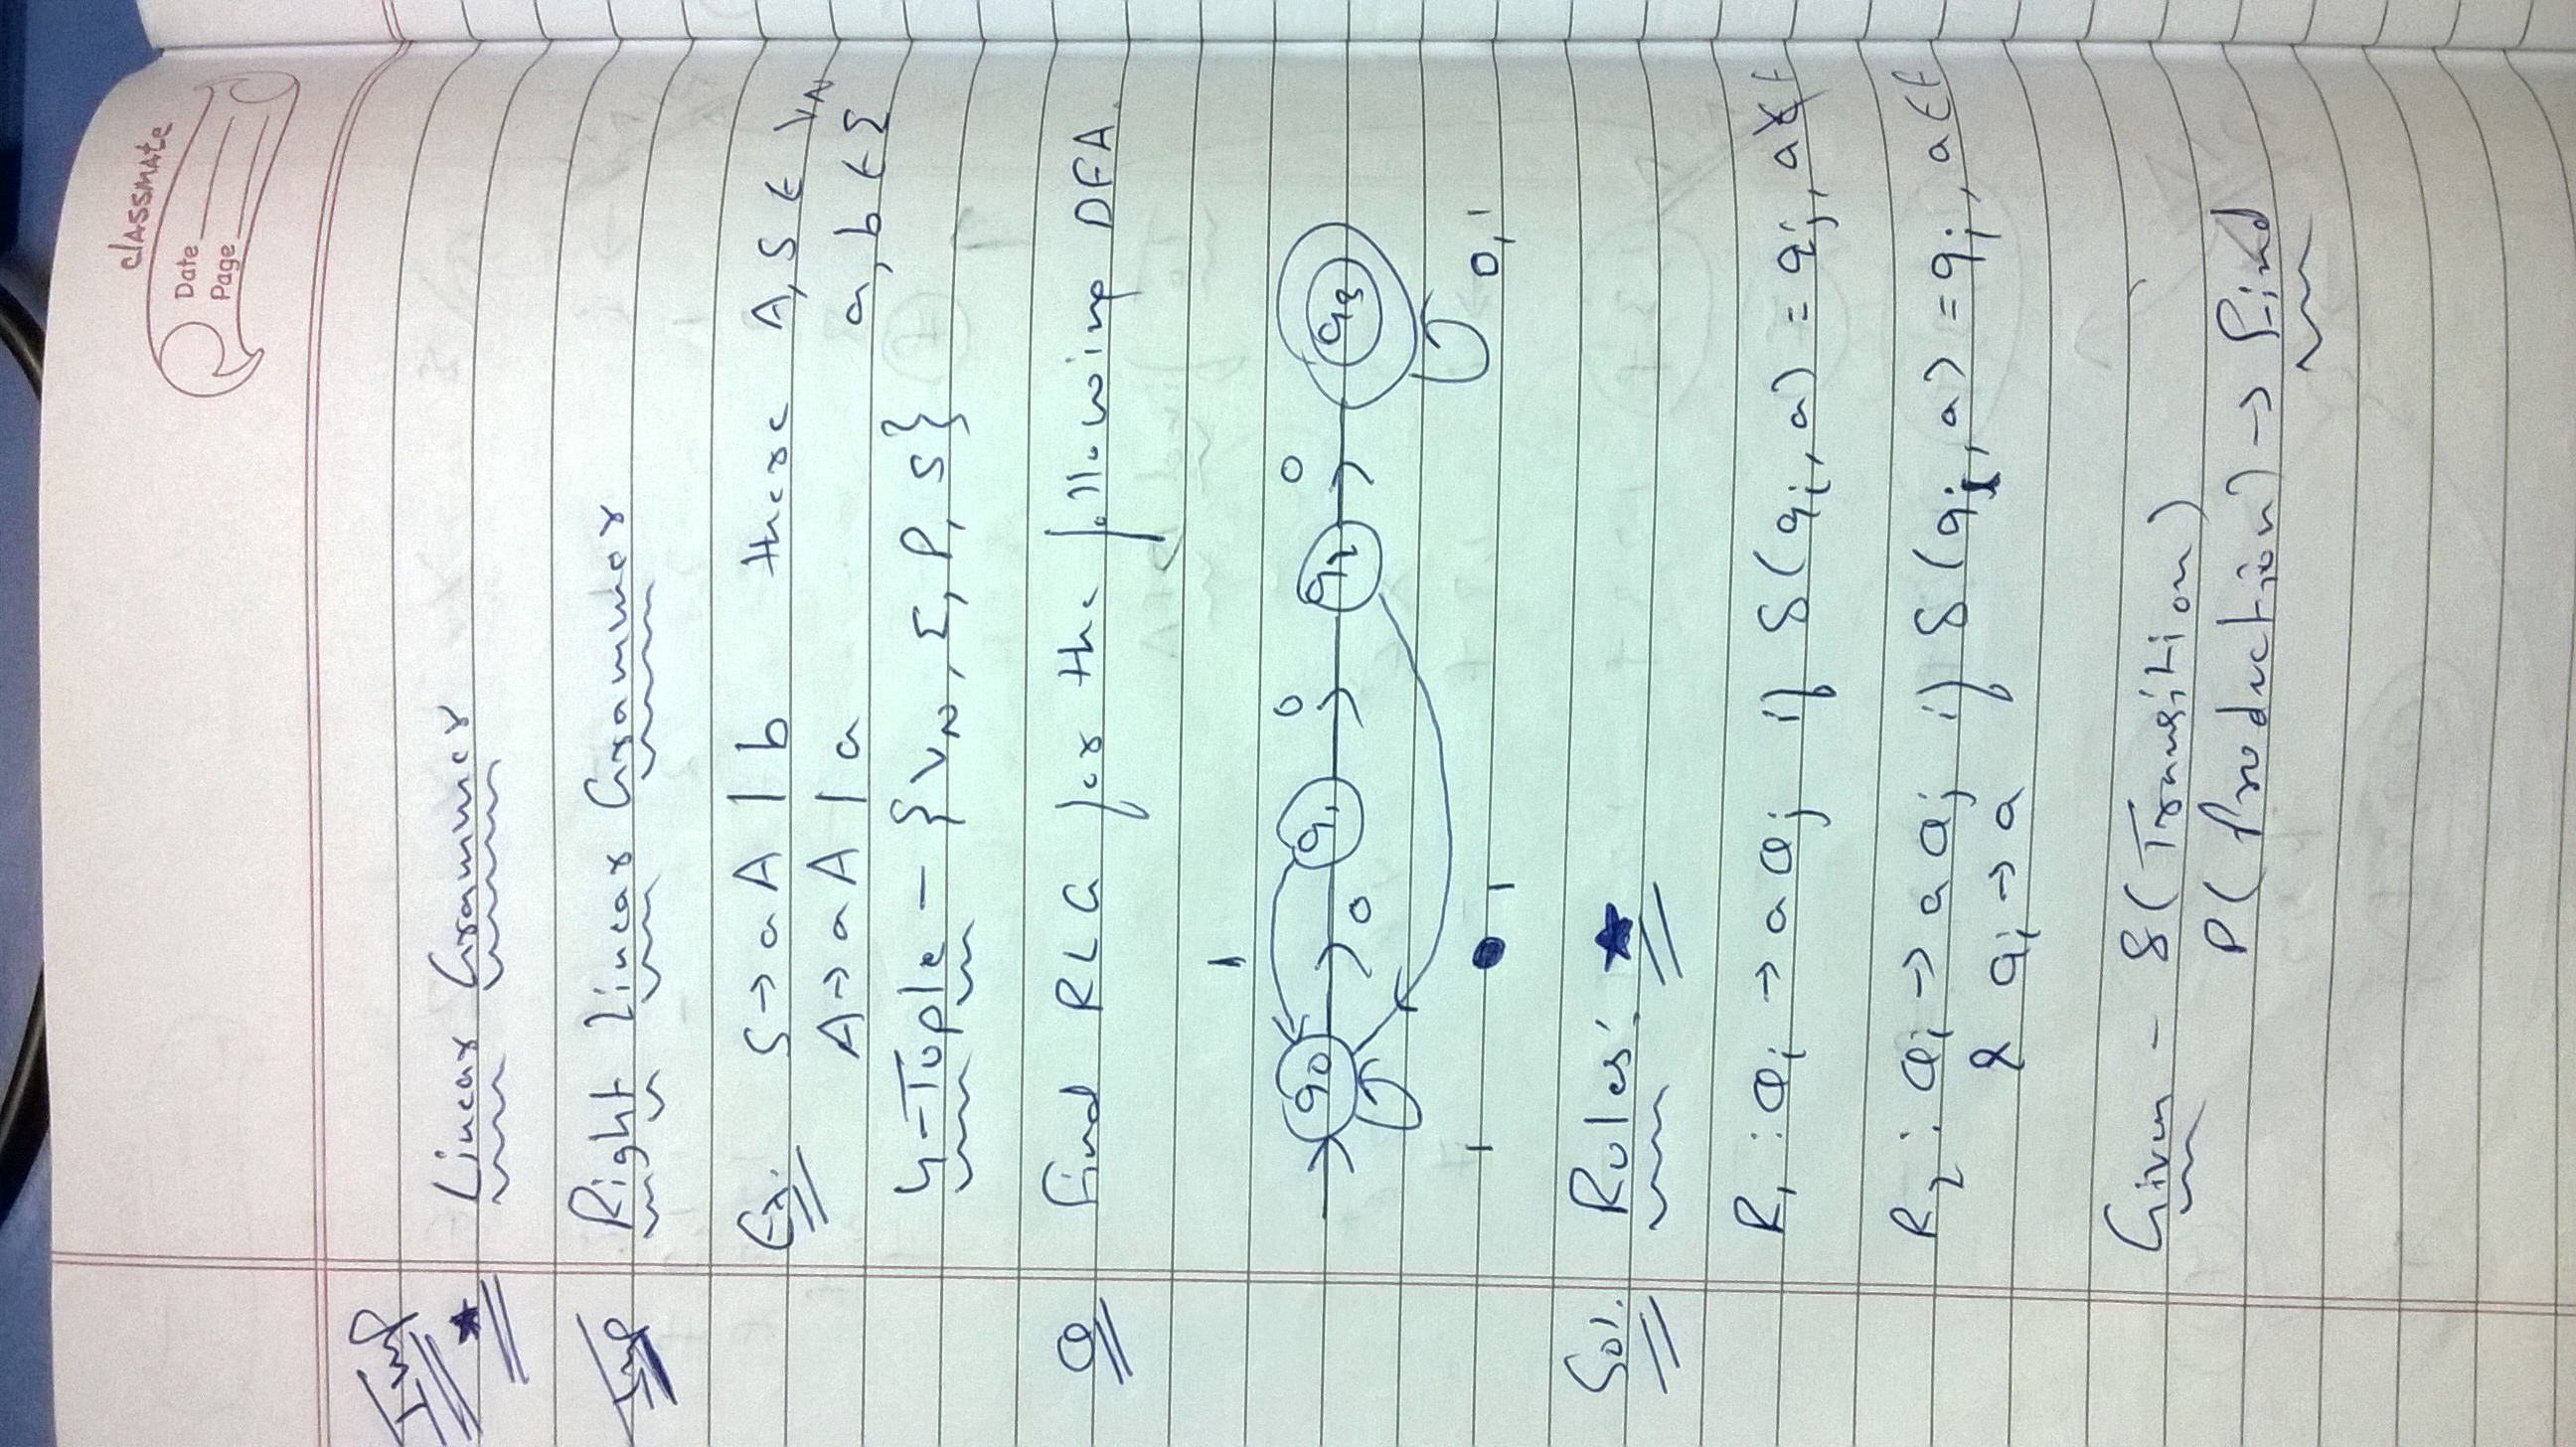 classmate
Date
Page
Imp
★ Linear Grammer
Imp Right Linear Grammer
Ex. S→aA | b there A, S ∈ VN
A→aA | a a, b ∈ Σ
4-Tuple - {VN, Σ, P, S}
Q Find RLG for the following DFA.
1
0 0
q0 q1 q2 q3
0
1 1 0,1
Sol. Rules: ★
R1 : Qi → a Qj if δ(qi, a) = qj, a∉F
R2 : Qi → a Qj if δ(qi, a) = qj, a∈F
& qi → a
Given - δ(Transition)
P(Production) → Find